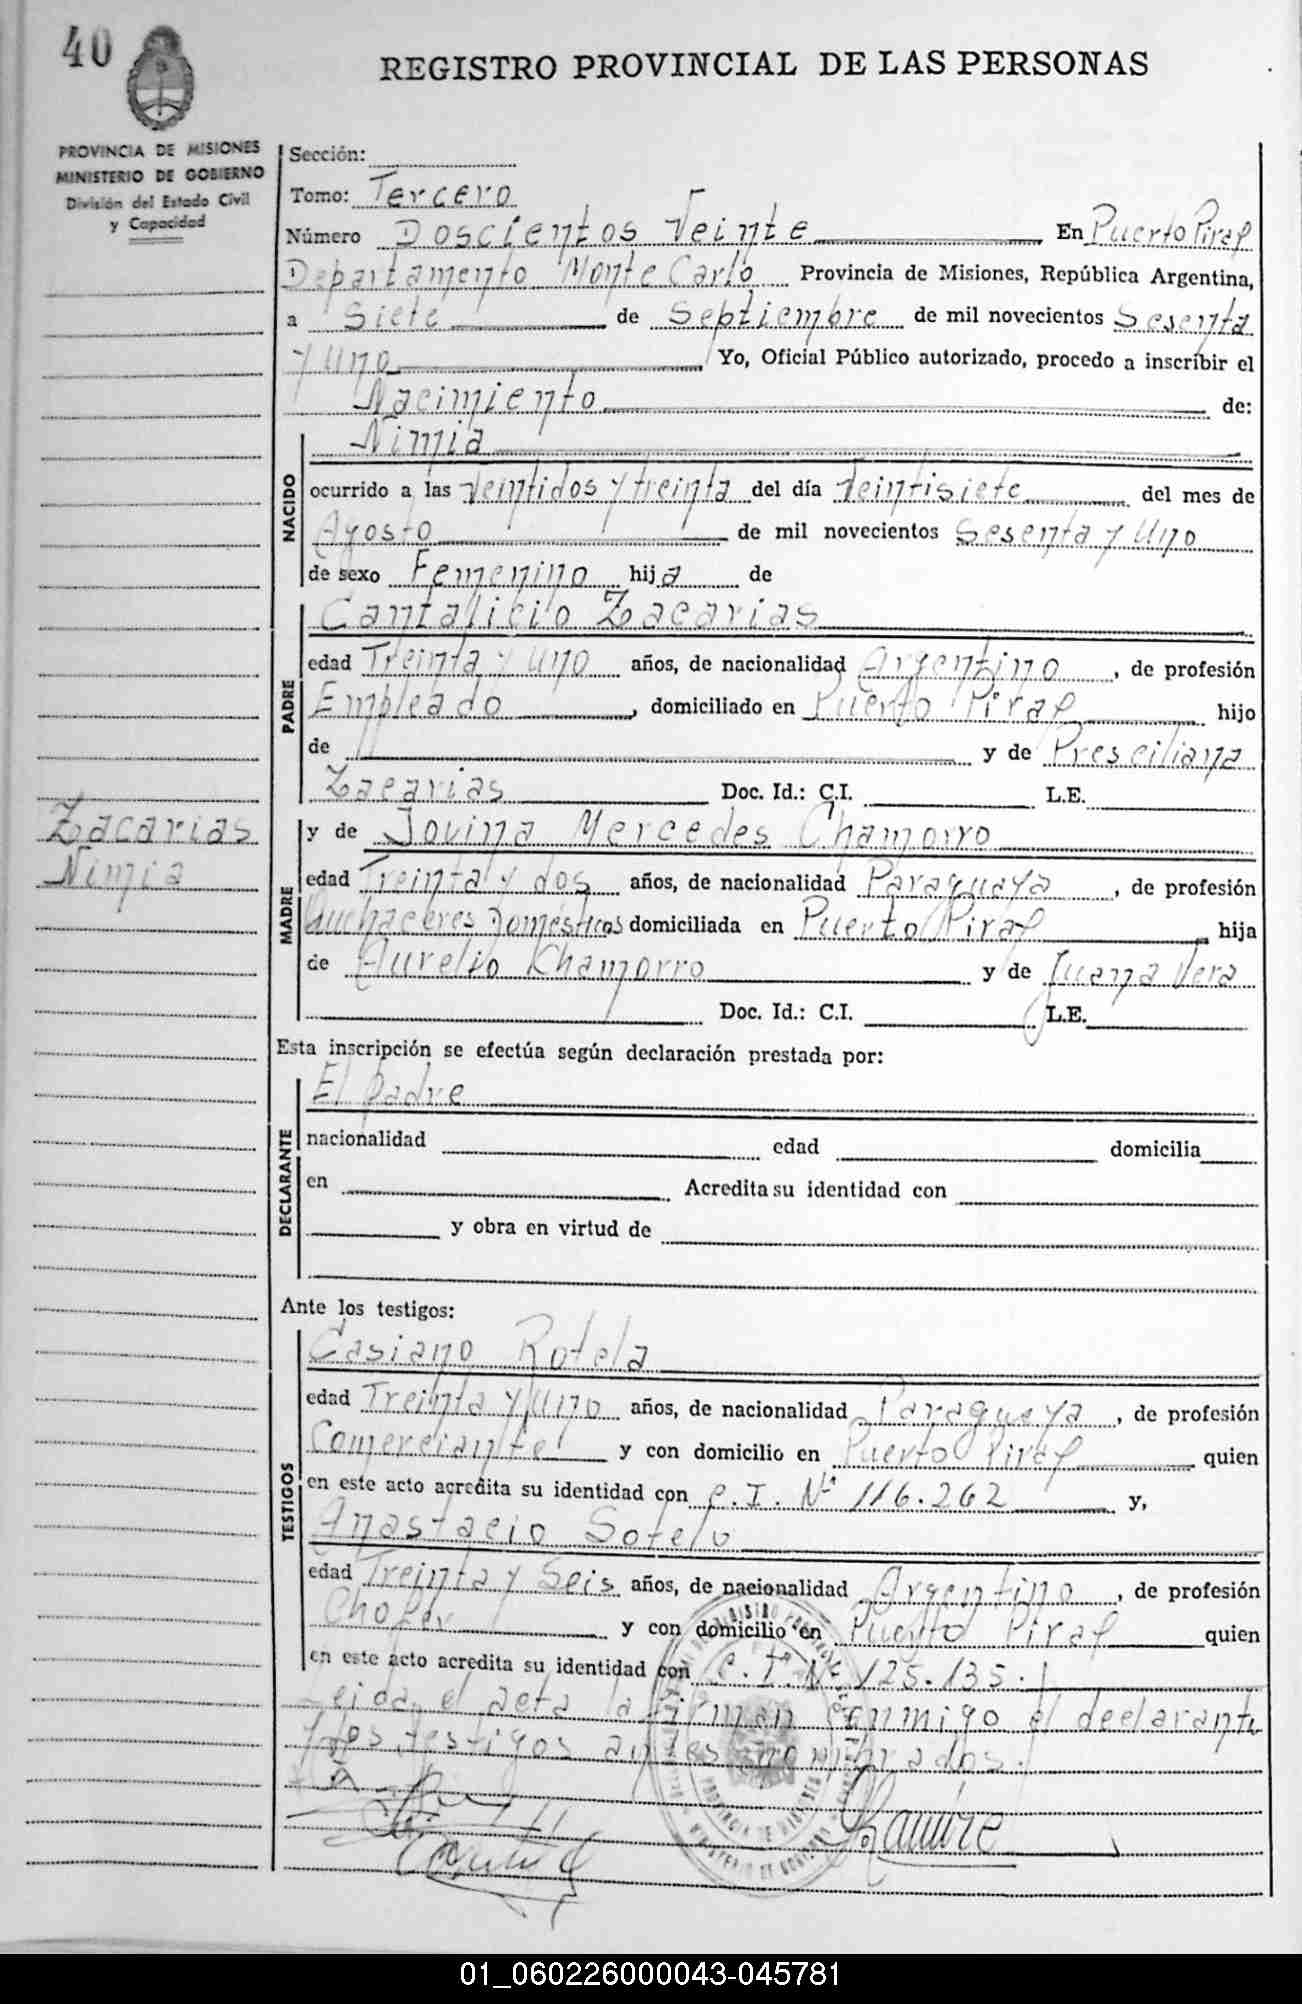 40
REGISTRO PROVINCIAL DE LAS PERSONAS
PROVINCIA DE MISIONES
MINISTERIO DE GOBIERNO
División del Estado Civil
y Capacidad
Sección:
Tomo: Tercero
Número Doscientos Veinte En Puerto Piraý
Departamento Monte Carlo Provincia de Misiones, República Argentina,
a Siete de Septiembre de mil novecientos Sesenta
y Uno Yo, Oficial Público autorizado, procedo a inscribir el
Nacimiento de:
Nimia
NACIDO
ocurrido a las Veintidos y treinta del día Veintisiete del mes de
Agosto de mil novecientos Sesenta y Uno
de sexo Femenino hija de
Cantalicio Zacarias
PADRE
edad Treinta y Uno años, de nacionalidad Argentino, de profesión
Empleado, domiciliado en Puerto Piraý hijo
de y de Presciliana
Zacarias Doc. Id.: C.I. L.E.
Zacarias
Nimia
y de Jovina Mercedes Chamorro
MADRE
edad Treinta y dos años, de nacionalidad Paraguaya, de profesión
Quehaceres Domésticos domiciliada en Puerto Piraý hija
de Aurelio Chamorro y de Juana Vera
Doc. Id.: C.I. L.E.
Esta inscripción se efectúa según declaración prestada por:
El padre
DECLARANTE
nacionalidad edad domicilia
en Acredita su identidad con
y obra en virtud de
Ante los testigos:
Casiano Rotela
TESTIGOS
edad Treinta y Uno años, de nacionalidad Paraguaya, de profesión
Comerciante y con domicilio en Puerto Piraý quien
en este acto acredita su identidad con C.I. Nº 116.262 y,
Anastacio Sotelo
edad Treinta y Seis años, de nacionalidad Argentino, de profesión
Chofer y con domicilio en Puerto Piraý quien
en este acto acredita su identidad con C.I. Nº 125.135.
Leida el acta la firman conmigo el declarante
y los testigos antes nombrados.
Ramire
01_060226000043-045781